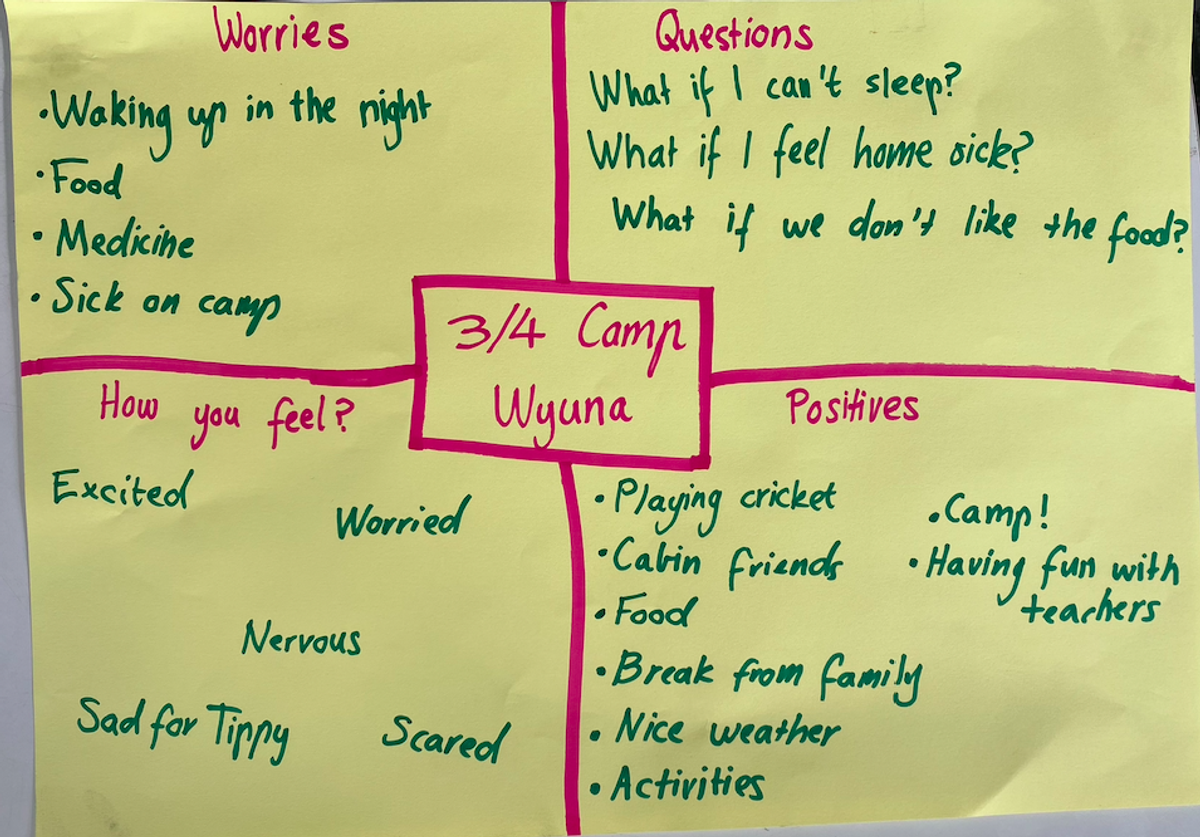 Worries
•Waking up in the night
•Food
•Medicine
•Sick on camp
Questions
What if I can't sleep?
What if I feel home sick?
What if we don't like the food?
3/4 Camp
Wyuna
How you feel?
Excited
Worried
Nervous
Sad for Tippy
Scared
Positives
•Playing cricket
•Cabin friends
•Food
•Break from family
•Nice weather
•Activities
•Camp!
•Having fun with
teachers